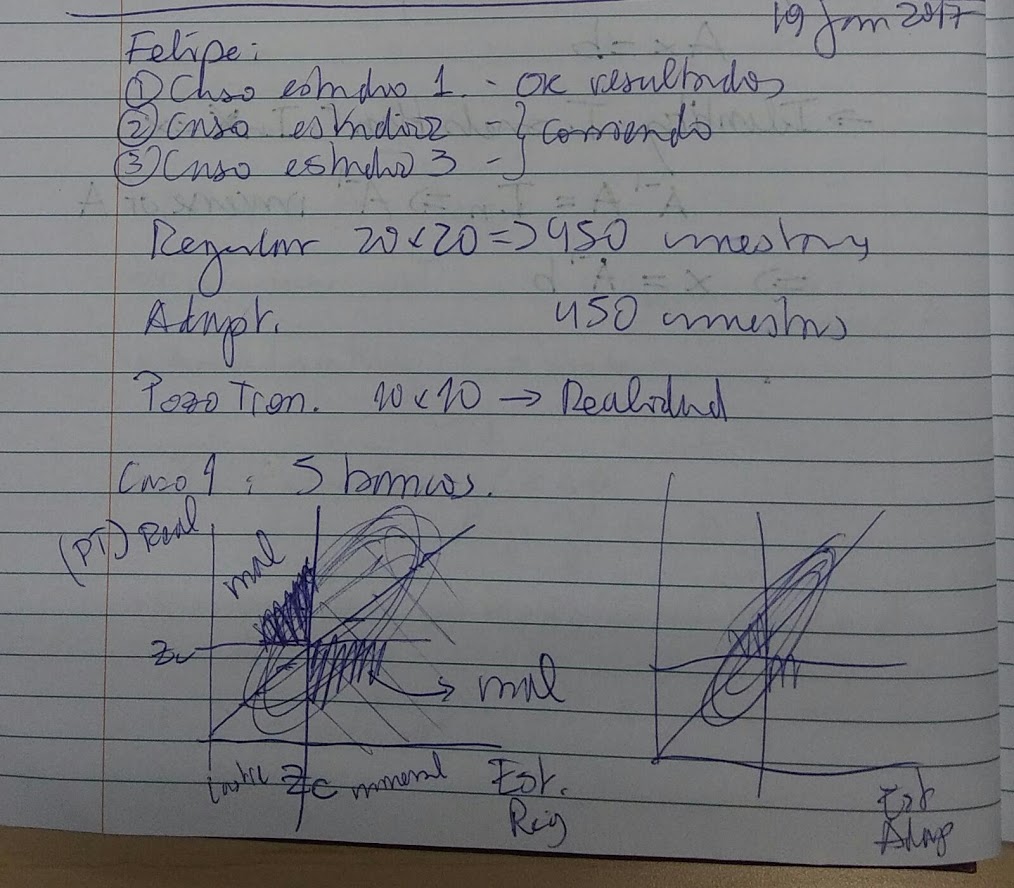 19 Jan 2017
Felipe:
① Caso estudio 1. - OK resultados
② Caso estudio 2 - } corriendo
③ Caso estudio 3 -
Regular 20x20 => 450 muestras
Adapt. 450 muestras
Pozo Tron. 10x10 → Realidad
Caso 1: 5 bancos.
(PT) Real
mal
Zc
mal
lastre Zc mineral
Est.
Reg
Est
Adap